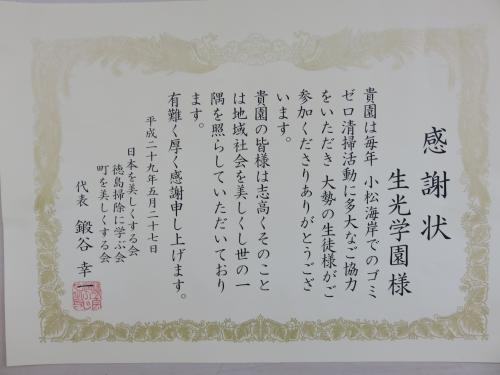 感謝状
生光学園様
貴園は毎年 小松海岸でのゴミ
ゼロ清掃活動に多大なご協力
をいただき 大勢の生徒様がご
参加くださりありがとうござ
います。
貴園の皆様は志高くそのこと
は地域社会を美しくし世の一
隅を照らしていただいており
ます。
有難く厚く感謝申し上げます。
平成二十九年五月二十七日
日本を美しくする会
徳島掃除に学ぶ会
町を美しくする会
代表 鍛谷 幸一